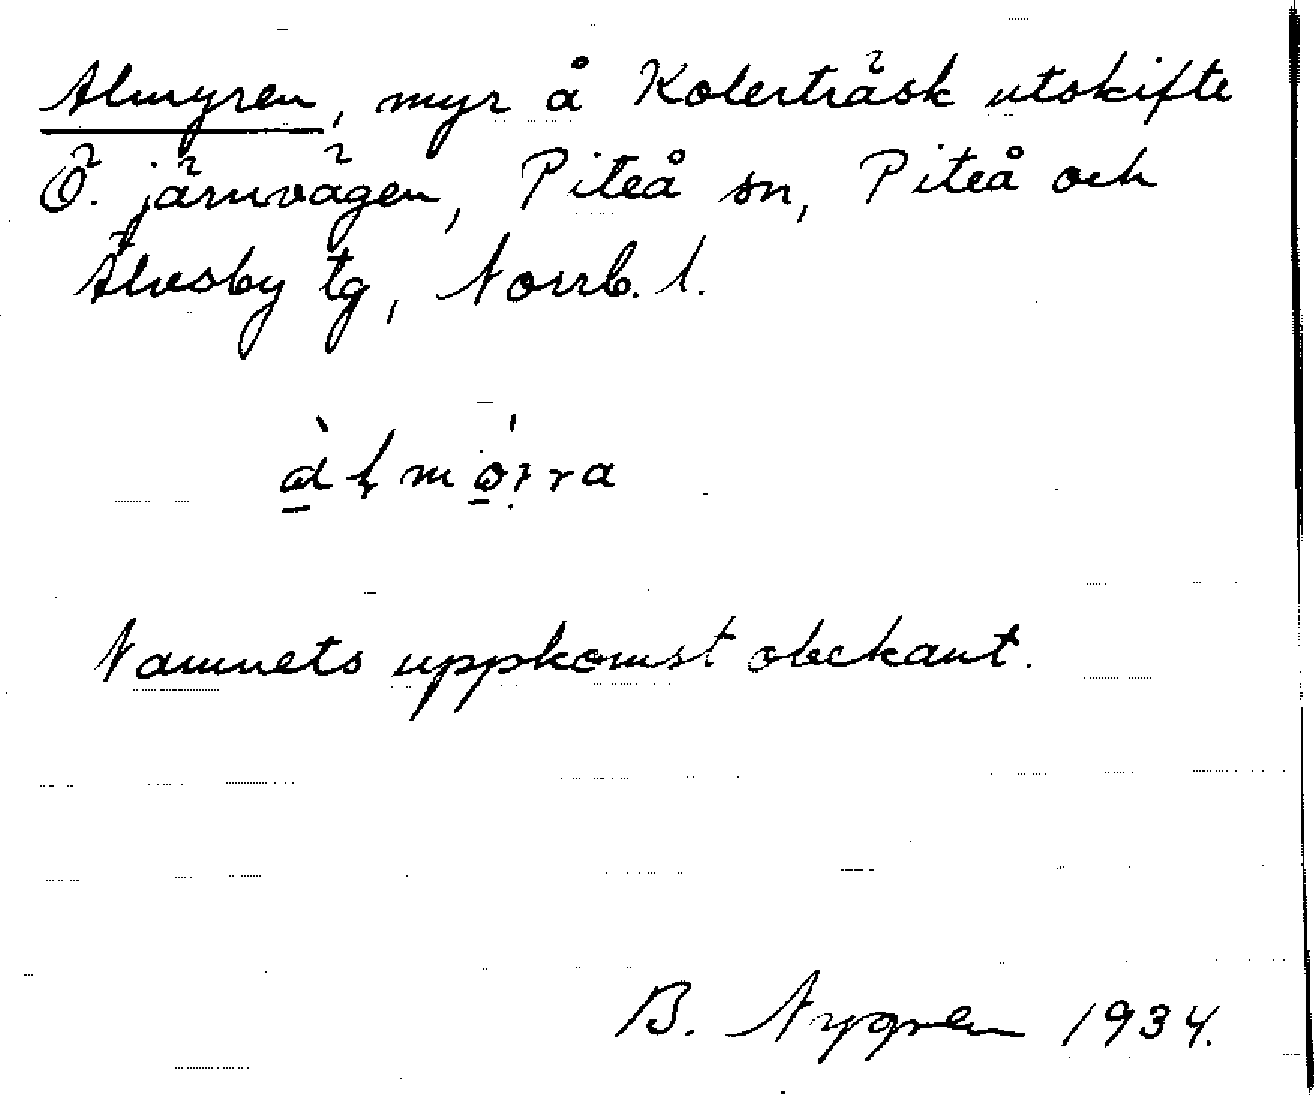 Almyren, myr å Kolerträsk utskifte
Ö. järnvägen, Piteå sn, Piteå och
Älvsby tg, Norrb. l.
Namnets uppkomst obekant.
B. Nygren 1934.